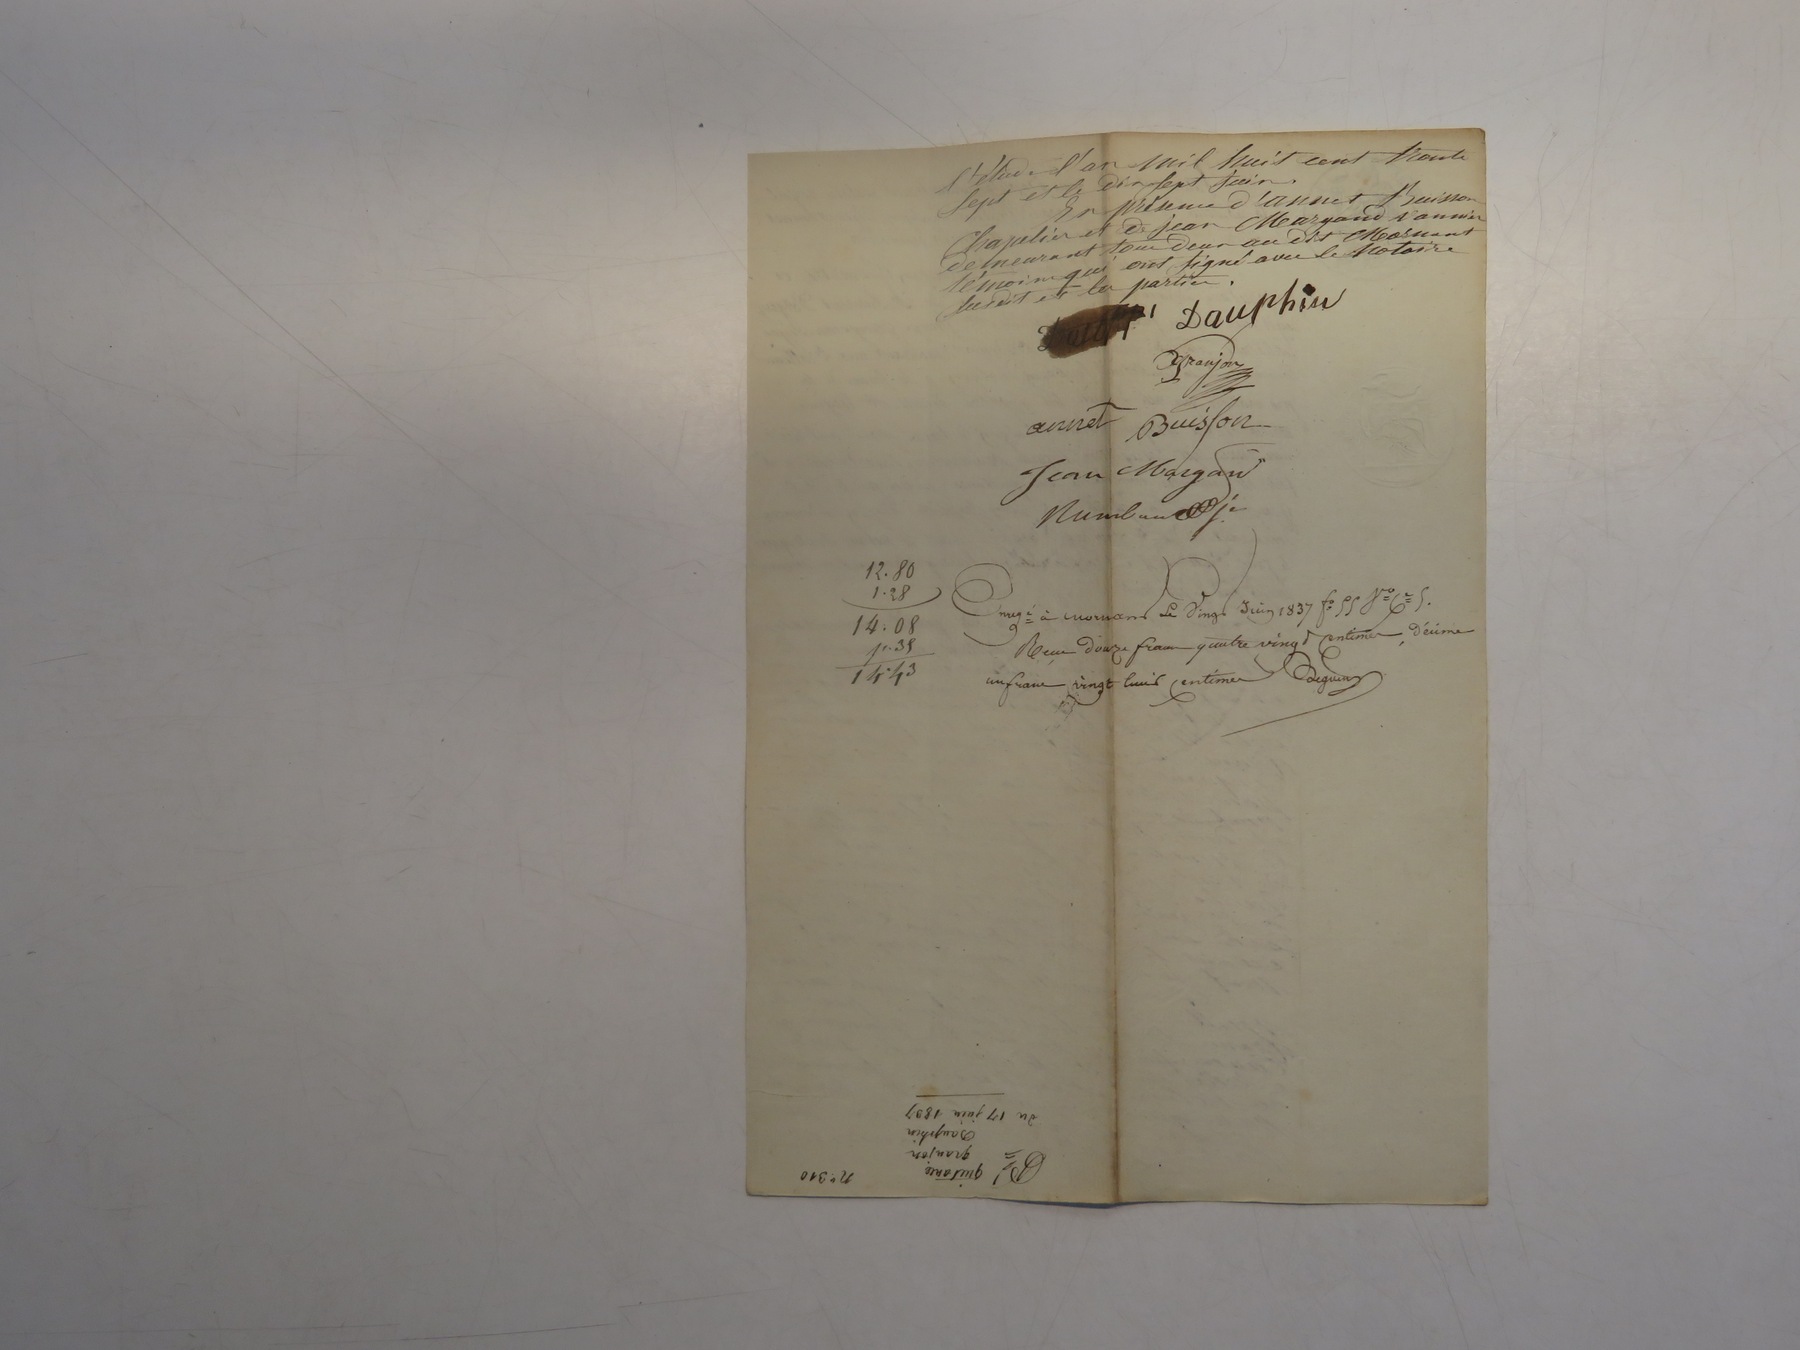 l'étude l'an mil huit cent trente
sept et le dix sept juin.
En présence d'annet Buisson
Chapelier et de jean Margand vannier
demeurant tous deux au dit Mornant
témoins qui ont signé avec le Notaire
susdit et les parties.
Dauphin
granjon
annet Buisson
Jean Margand
12.80
1.28
14.08
p. 35
14.43
Enregé à mornant Le Vingt Juin 1837 fo 55 Vo Ce 5.
Reçu douze francs quatre vingt centimes, décime
un franc vingt huit centimes
Nº 310
quitance
granjon
Dauphin
du 17 juin 1837